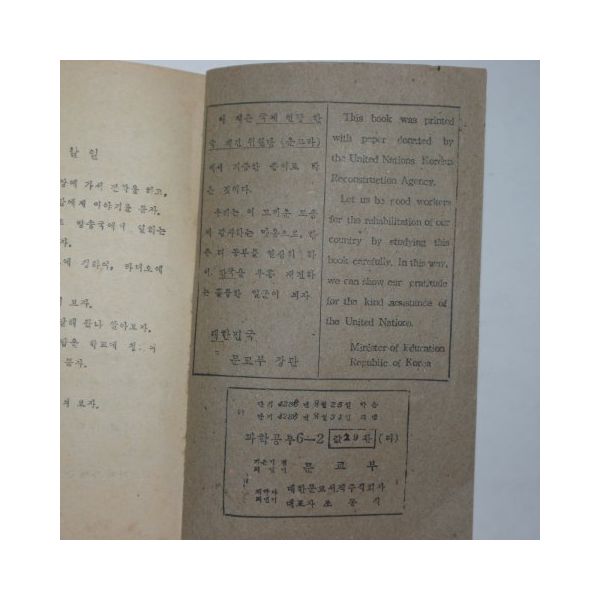 할 일
에 가서 견학을 하고,
에게 이야기를 듣자.
방송국에서 일하는
자.
에 관하여, 라디오에
보자.
알아보자.
학교에
듣자.
보자.
이 책은 국제 연합 한
국 재건 위원단 (운끄라)
에서 기증한 종이로 박
은 것이다.
우리는 이 고마운 도움
에 감사하는 마음으로, 한
층 더 공부를 열심히 하
여, 한국을 부흥 재건하
는 훌륭한 일군이 되자
대한민국
문교부 장관
This book was printed
with paper donated by
the United Nations Korean
Reconstruction Agency.
Let us be good workers
for the rehabilitation of our
country by studying this
book carefully. In this way,
we can show our gratitude
for the kind assistance of
the United Nations.
Minister of Education
Republic of Korea
단기 4286년 8월 25일
단기 4286년 8월 31일
과학공부 6—2 값 29환
문교부
대한문교서적주식회사
대표자